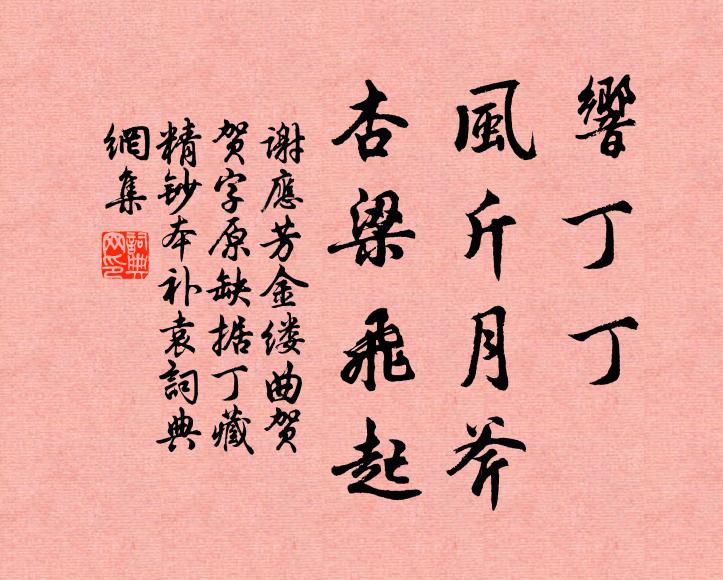 響丁丁
風斤月斧
杏梁飛起
謝應芳金缕曲贺
贺字原缺据丁藏
精鈔本补袁詞典
網集
詞典網印